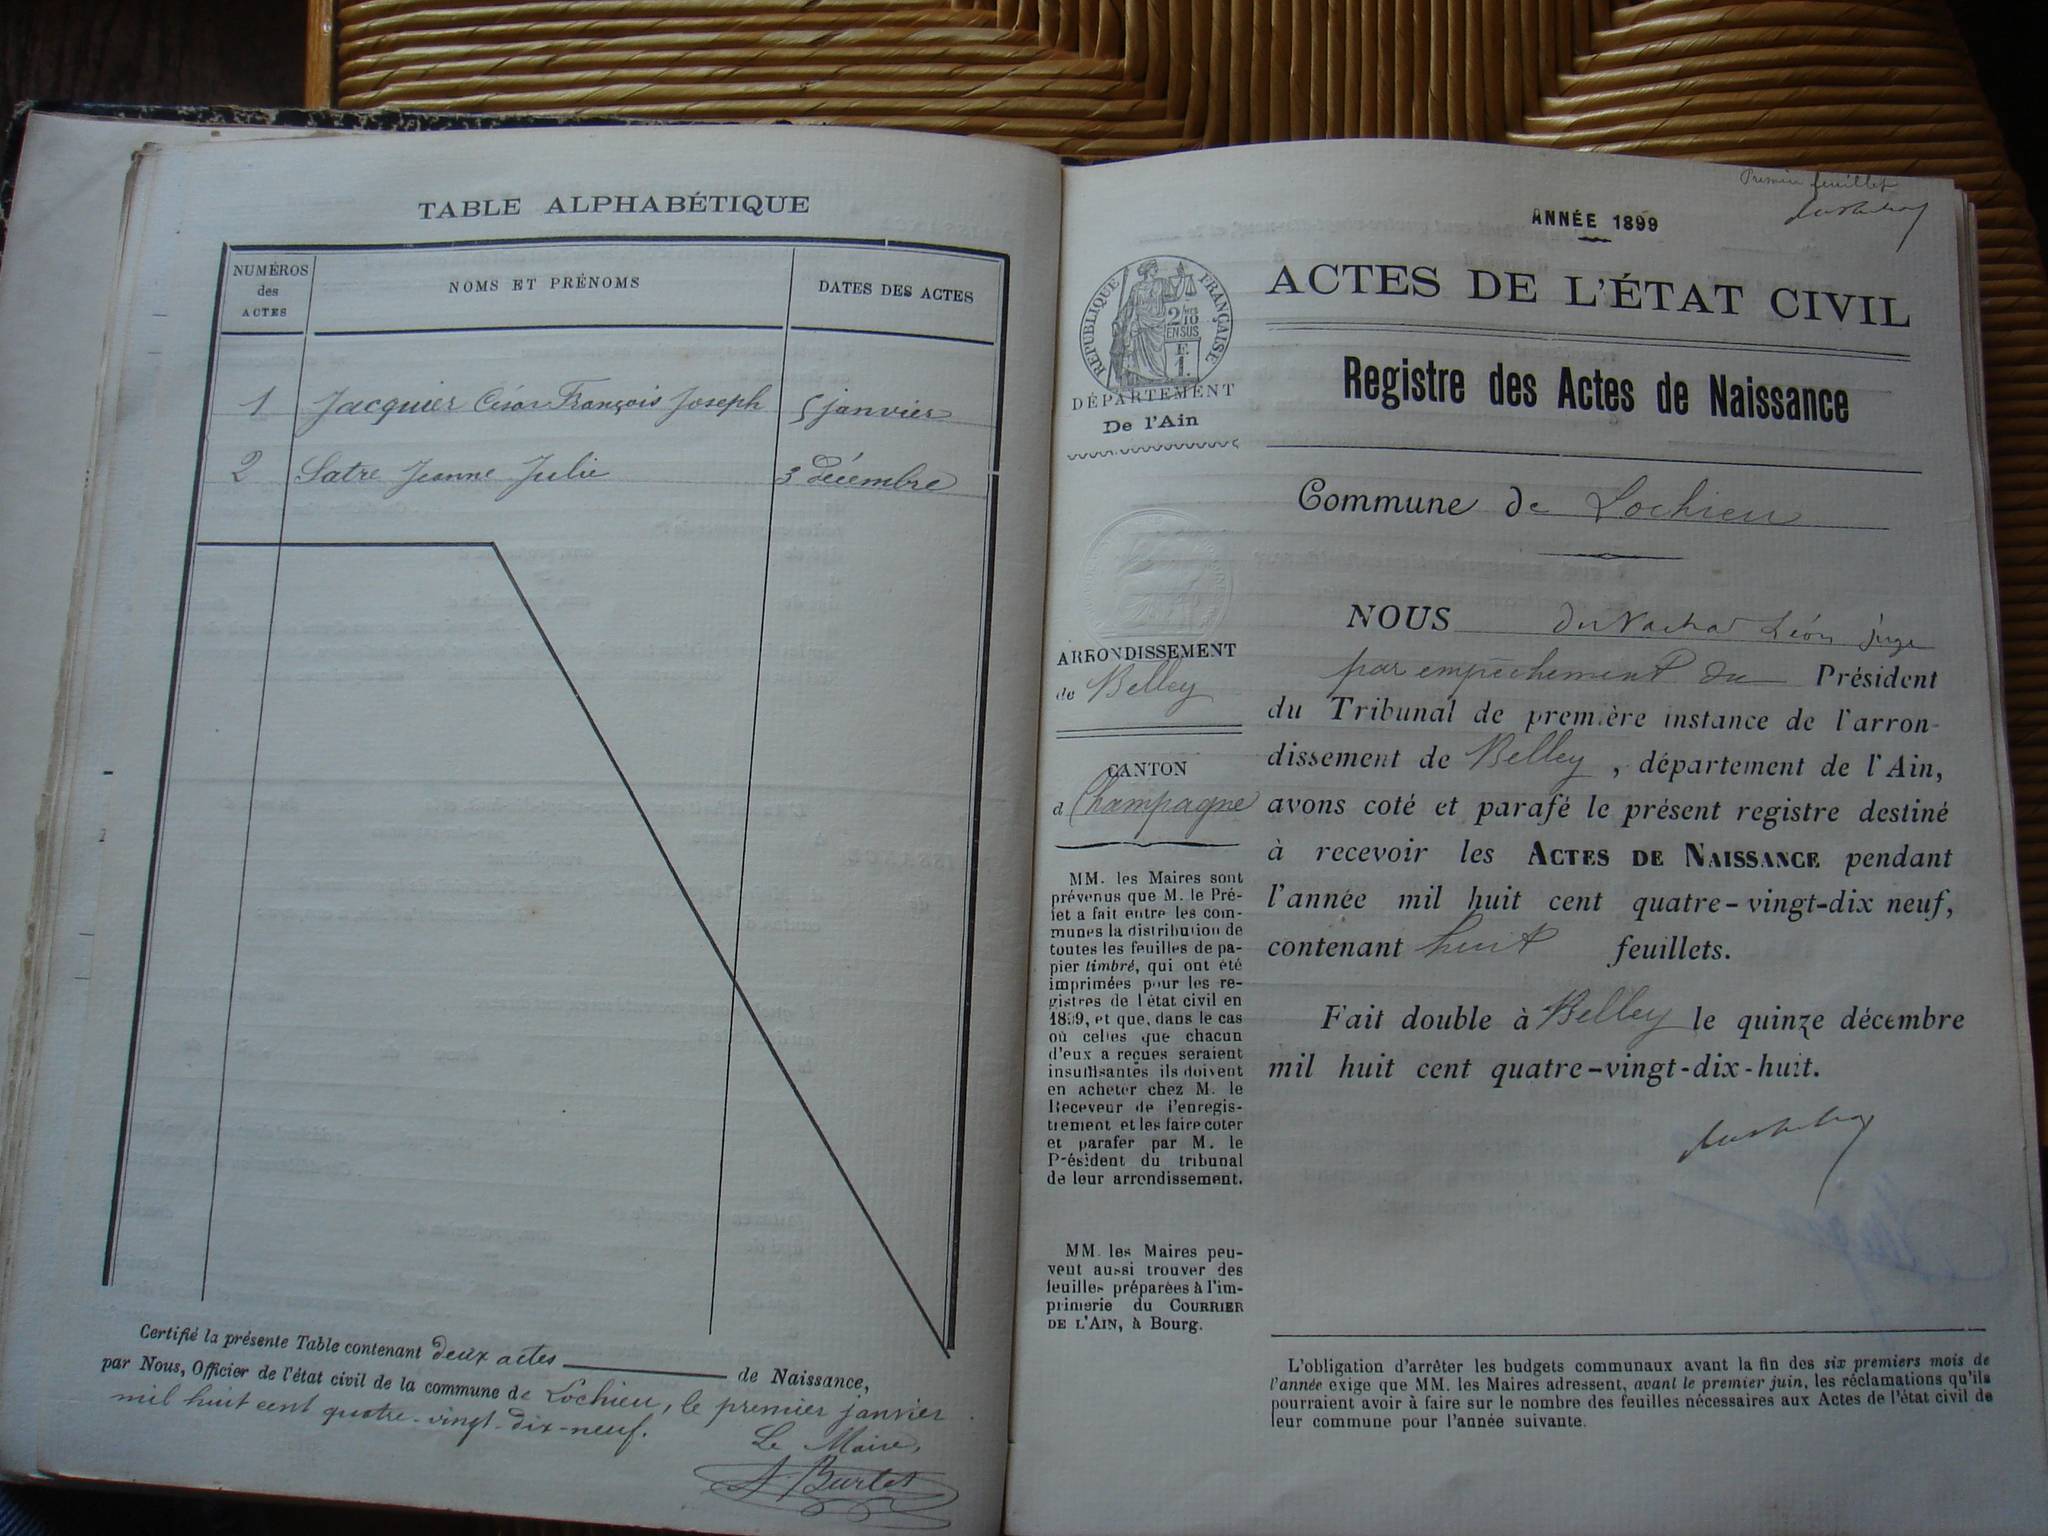 TABLE ALPHABÉTIQUE
NUMÉROS
des
ACTES
NOMS ET PRÉNOMS
DATES DES ACTES
1 Jacquier César François Joseph 5 janvier
2 Satre Jeanne Julie 3 Décembre
Certifié la présente Table contenant deux actes de Naissance,
par Nous, Officier de l'état civil de la commune de Lochieu, le premier janvier
mil huit cent quatre-vingt-dix-neuf.
Le Maire,
Burtet
Premier feuillet
ANNÉE 1899
RÉPUBLIQUE FRANÇAISE
2/10
EN SUS
F.
1.
DÉPARTEMENT
De l'Ain
ARRONDISSEMENT
de Belley
CANTON
d Champagne
MM. les Maires sont
prévenus que M. le Pré-
fet a fait entre les com-
munes la distribution de
toutes les feuilles de pa-
pier timbré, qui ont été
imprimées pour les re-
gistres de l'état civil en
1899, et que, dans le cas
où celles que chacun
d'eux a reçues seraient
insuffisantes ils doivent
en acheter chez M. le
Receveur de l'enregis-
trement et les faire coter
et parafer par M. le
Président du tribunal
de leur arrondissement.
MM. les Maires peu-
vent aussi trouver des
feuilles préparées à l'im-
primerie du COURRIER
DE L'AIN, à Bourg.
ACTES DE L'ÉTAT CIVIL
Registre des Actes de Naissance
Commune de Lochieu
NOUS Léon juge
par empêchement du Président
du Tribunal de première instance de l'arron-
dissement de Belley, département de l'Ain,
avons coté et parafé le présent registre destiné
à recevoir les ACTES DE NAISSANCE pendant
l'année mil huit cent quatre-vingt-dix neuf,
contenant huit feuillets.
Fait double à Belley le quinze décembre
mil huit cent quatre-vingt-dix-huit.
L'obligation d'arrêter les budgets communaux avant la fin des six premiers mois de
l'année exige que MM. les Maires adressent, avant le premier juin, les réclamations qu'ils
pourraient avoir à faire sur le nombre des feuilles nécessaires aux Actes de l'état civil de
leur commune pour l'année suivante.